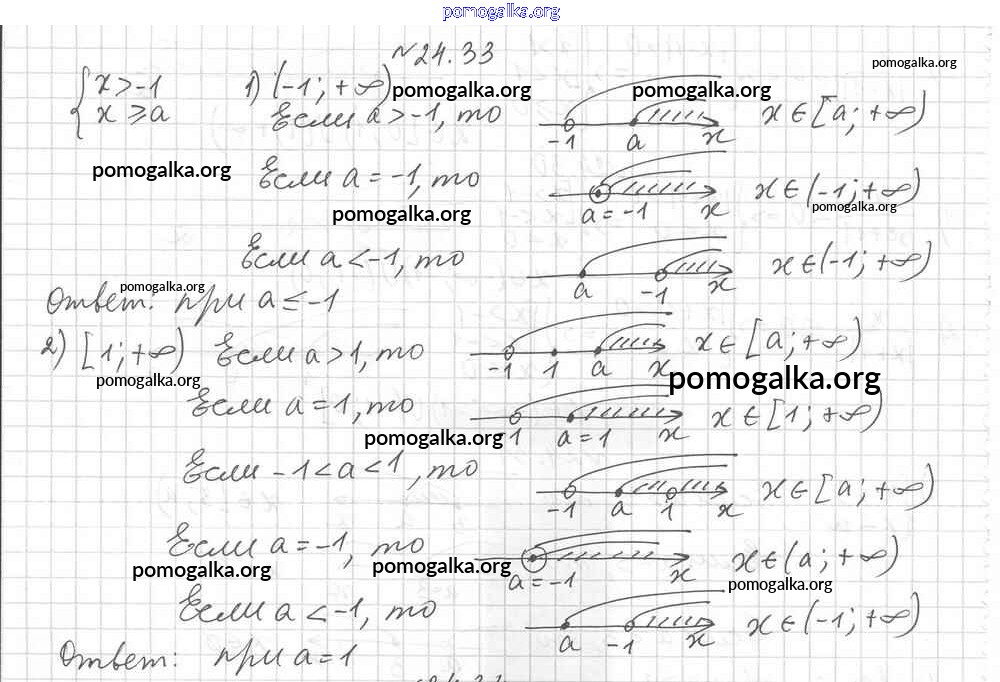 pomogalka.org
№24.33
pomogalka.org
{ x > -1
x ≥ a
1) (-1; +∞)
pomogalka.org
pomogalka.org
Если a > -1, то
-1 a x
x ∈ [a; +∞)
pomogalka.org
Если a = -1, то
a = -1 x
x ∈ (-1; +∞)
pomogalka.org
pomogalka.org
Если a < -1, то
a -1 x
x ∈ (-1; +∞)
pomogalka.org
Ответ: при a ≤ -1
2) [1; +∞) Если a > 1, то
-1 1 a x
x ∈ [a; +∞)
pomogalka.org
pomogalka.org
Если a = 1, то
-1 a = 1 x
x ∈ [1; +∞)
pomogalka.org
Если -1 < a < 1, то
-1 a 1 x
x ∈ [a; +∞)
Если a = -1, то
a = -1 x
x ∈ (a; +∞)
pomogalka.org
pomogalka.org
pomogalka.org
Если a < -1, то
a -1 x
x ∈ (-1; +∞)
Ответ: при a = 1